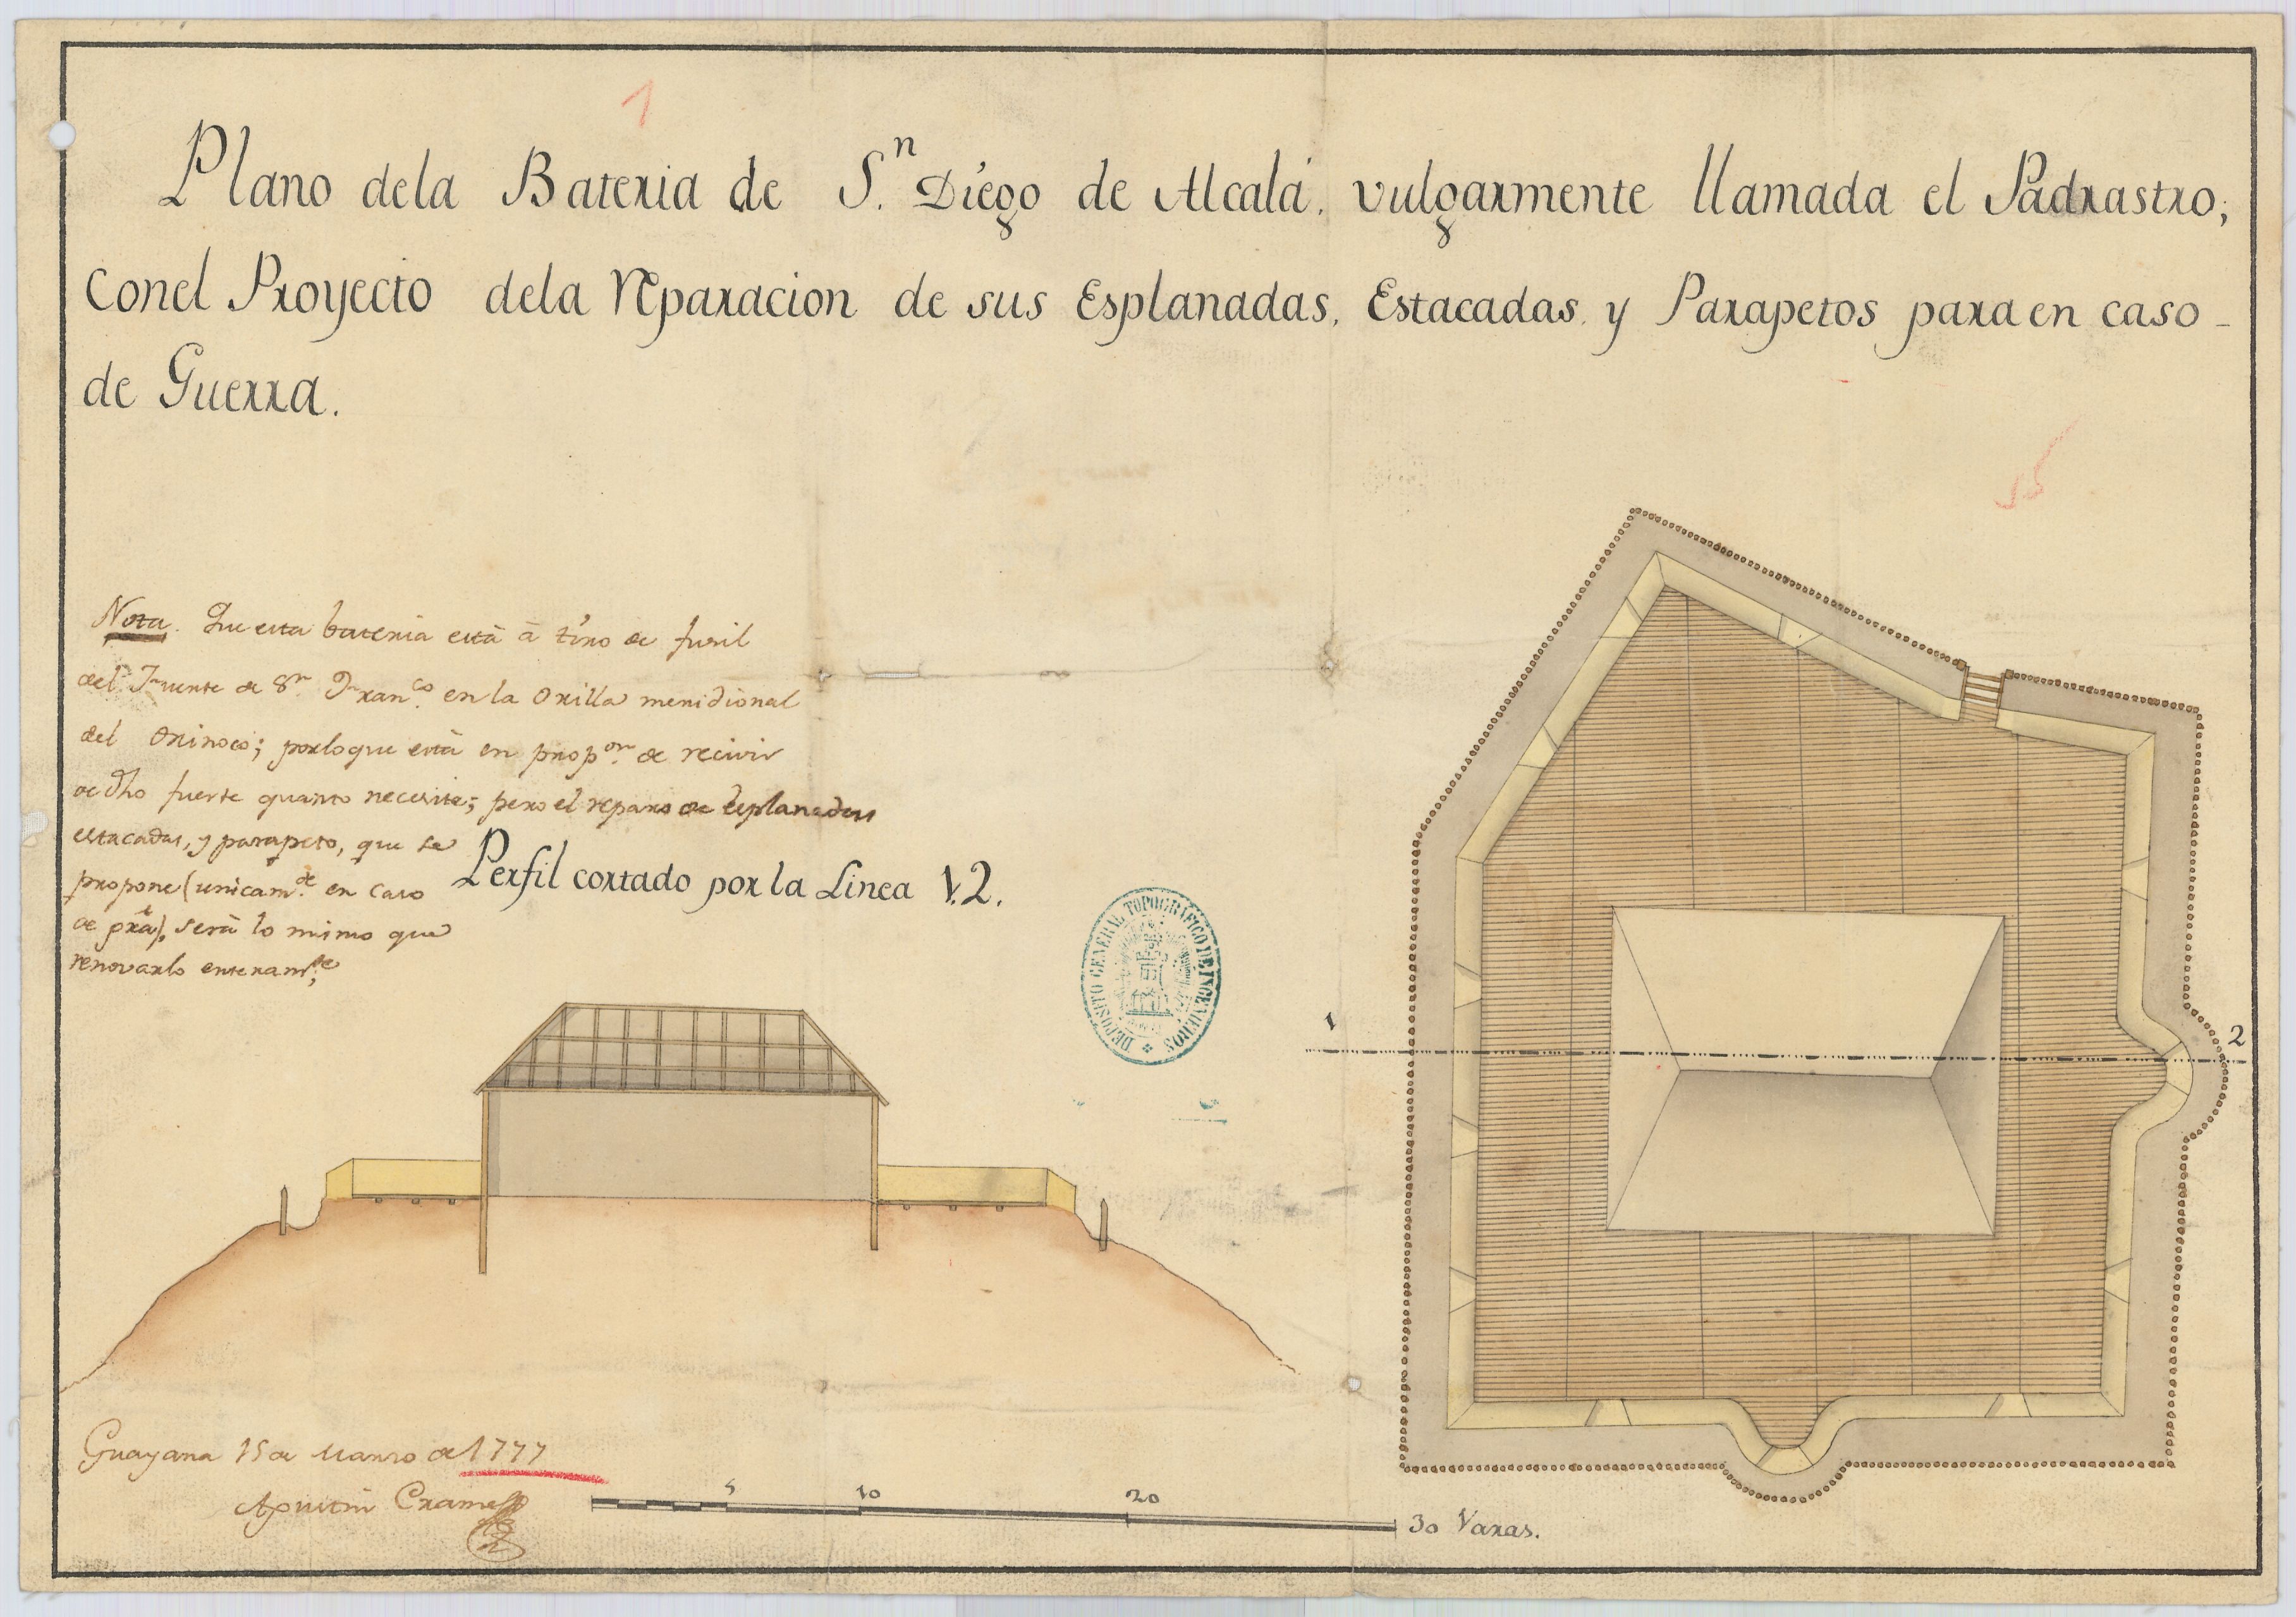 1
Plano dela Bateria de S.n Diego de Alcalá, vulgarmente llamada el Padrastro;
conel Proyecto dela Reparacion de sus Esplanadas, Estacadas, y Parapetos para en caso
de Guerra.
15
Nota. Que esta bateria está à tiro de fusil
del Fuerte de Sn. Franco. en la Orilla meridional
del Orinoco; porloque està en propon. de recivir
de dho fuerte quanto necesite; pero el reparo de Esplanadas
estacadas, y parapeto, que se
propone (unicamte. en caso
de grã), serà lo mismo que
renovarlo enteramte.
Perfil cortado por la Linea 1.2.
DEPOSITO GENERAL TOPOGRAFICO DE INGENIEROS
1
2
Guayana 15 de Marzo de 1777
Agustin Cramer
5 10 20 30 Varas.